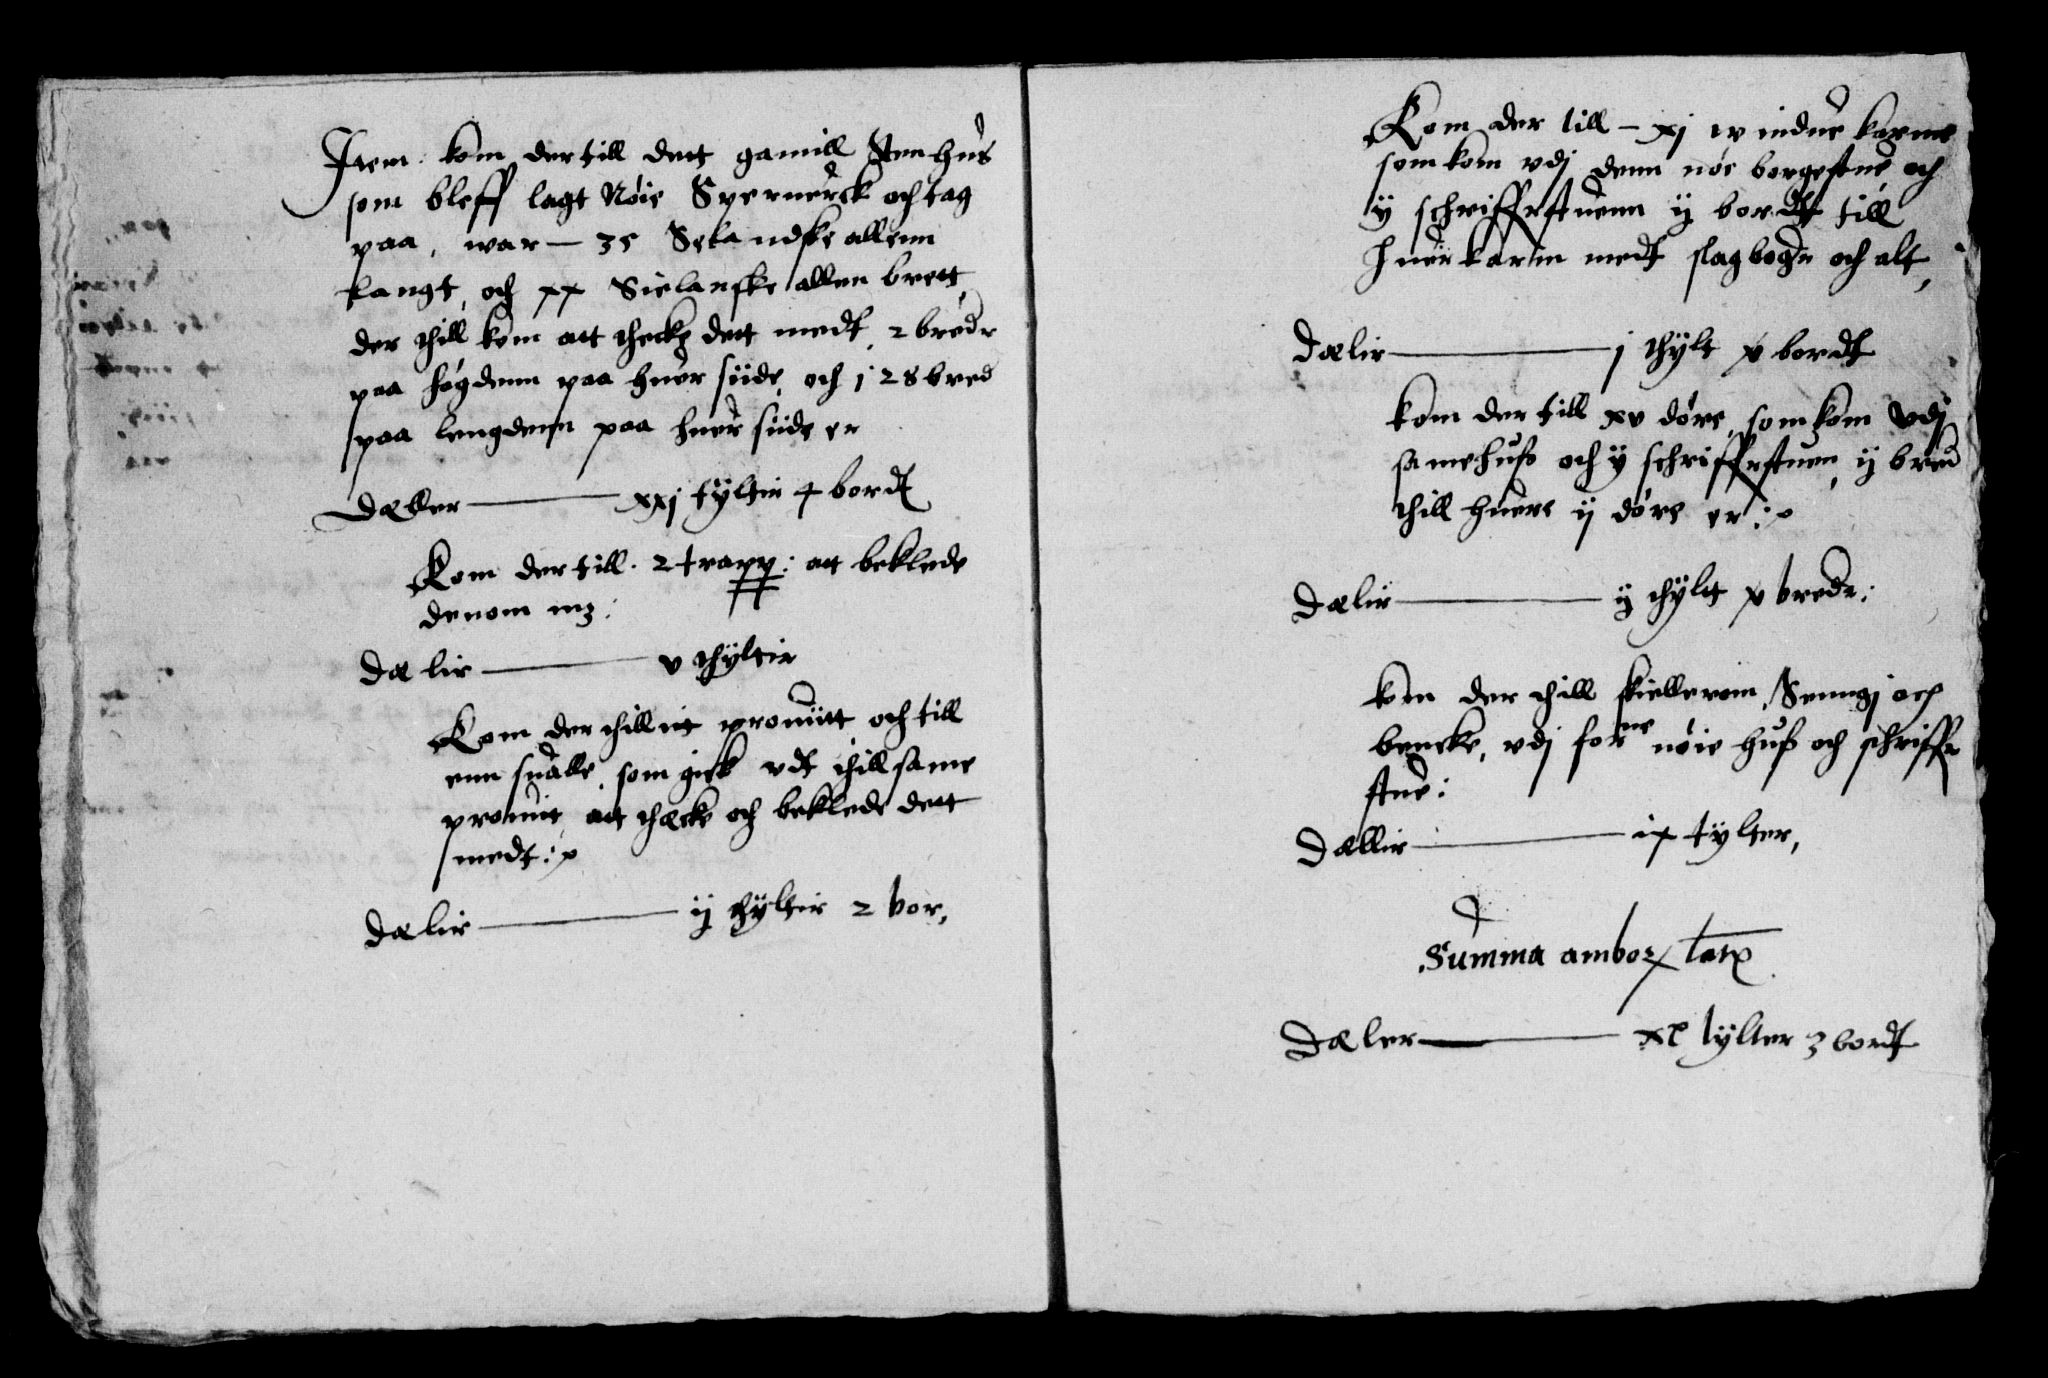 Item kom der till dett gamill Stenhus
som bleff lagt Nøie Speruerck och tag
paa, war — 35 Selandske allenn
langt, och xx Sielanske allen brett,
der thill kom att theckz dett medt, 2 bredr
paa høgdenn paa huer siide, och j 28 bred
paa lengdenn paa huer siide er
Dæller — xxj tylter 4 bordt
Kom der till. 2 trapp: att beklede
denom mz:
Dælir — v thyltir
Kom der thill it prouiitt och till
enn suålle, som gick vdt thill same
prouit att thæcke och beklede dett
medt:
Dælir — ij thyltir 2 bor,
Kom der till — xj windue karme
som kom vdj denn nøe borgestue, och
ÿ schriffrstuenn ij bordt till
huer karm medt slagbogr och alt,
Dælir — j thylt x bordt
kom der till xv døre, som kom vdj
same huß och ÿ schriffrstuen, ij bred
thill huere ij døre er:
Dælir — ij thylt x bredr:
kom der thill skiellerom, Senngj och
bencke, vdj forne nøie huß och schriffr
stue:
Dællir — ix tylter,
Summa ambor latr
Dæler — xl tylter 3 bordt